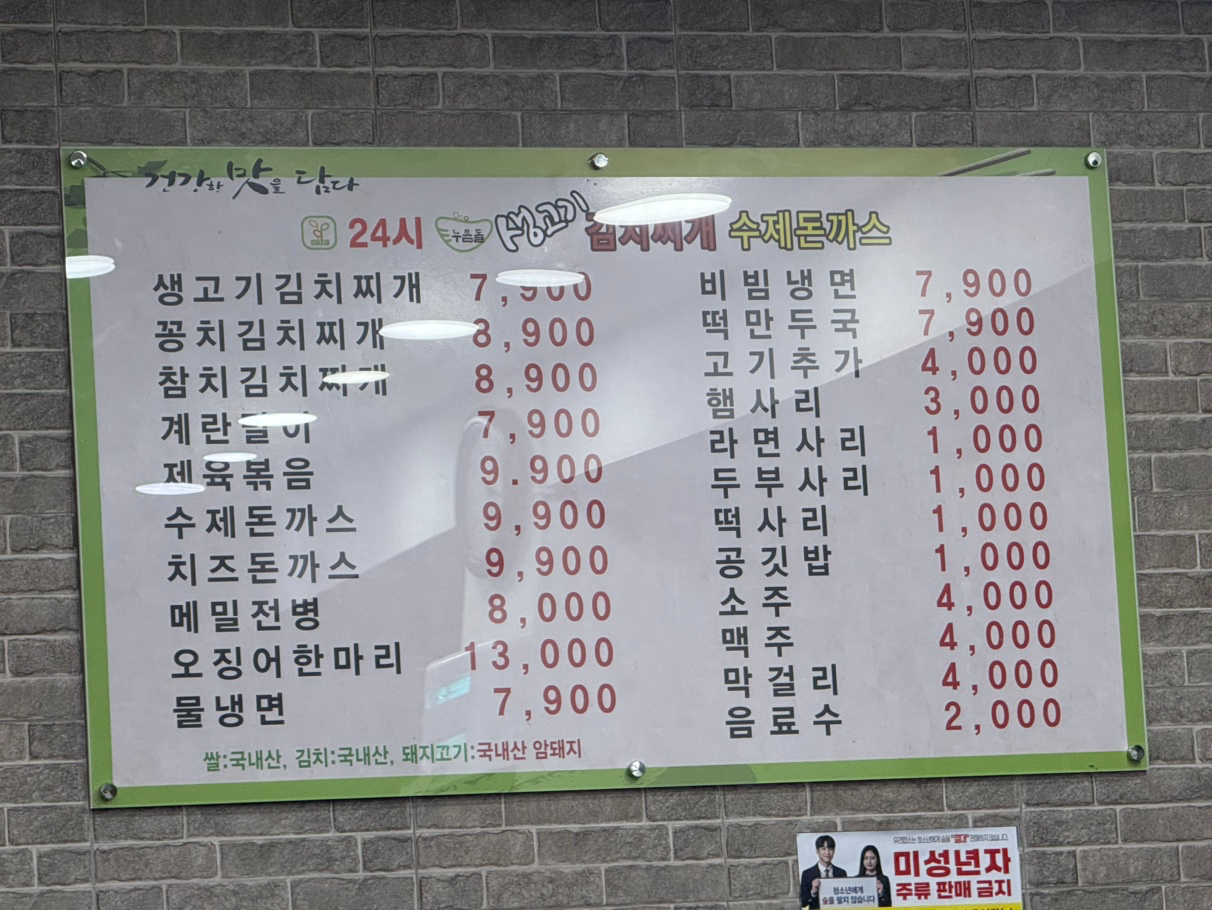 건강한 맛을 담다
24시 누음돌 생고기 김치찌개 수제돈까스
생고기김치찌개 7,900
꽁치김치찌개 8,900
참치김치찌개 8,900
계란말이 7,900
제육볶음 9.900
수제돈까스 9,900
치즈돈까스 9,900
메밀전병 8,000
오징어한마리 13,000
물냉면 7,900
쌀:국내산, 김치:국내산, 돼지고기:국내산 암돼지
비빔냉면 7,900
떡만두국 7,900
고기추가 4,000
햄사리 3,000
라면사리 1,000
두부사리 1,000
떡사리 1,000
공깃밥 1,000
소주 4,000
맥주 4,000
막걸리 4,000
음료수 2,000
미성년자
주류 판매 금지
청소년에게
술을 팔지 않습니다